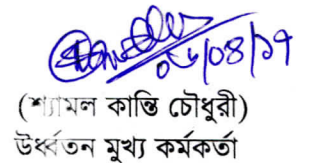 ০৬/০৪/১৭
(শ্যামল কান্তি চৌধুরী)
উর্ধ্বতন মুখ্য কর্মকর্তা